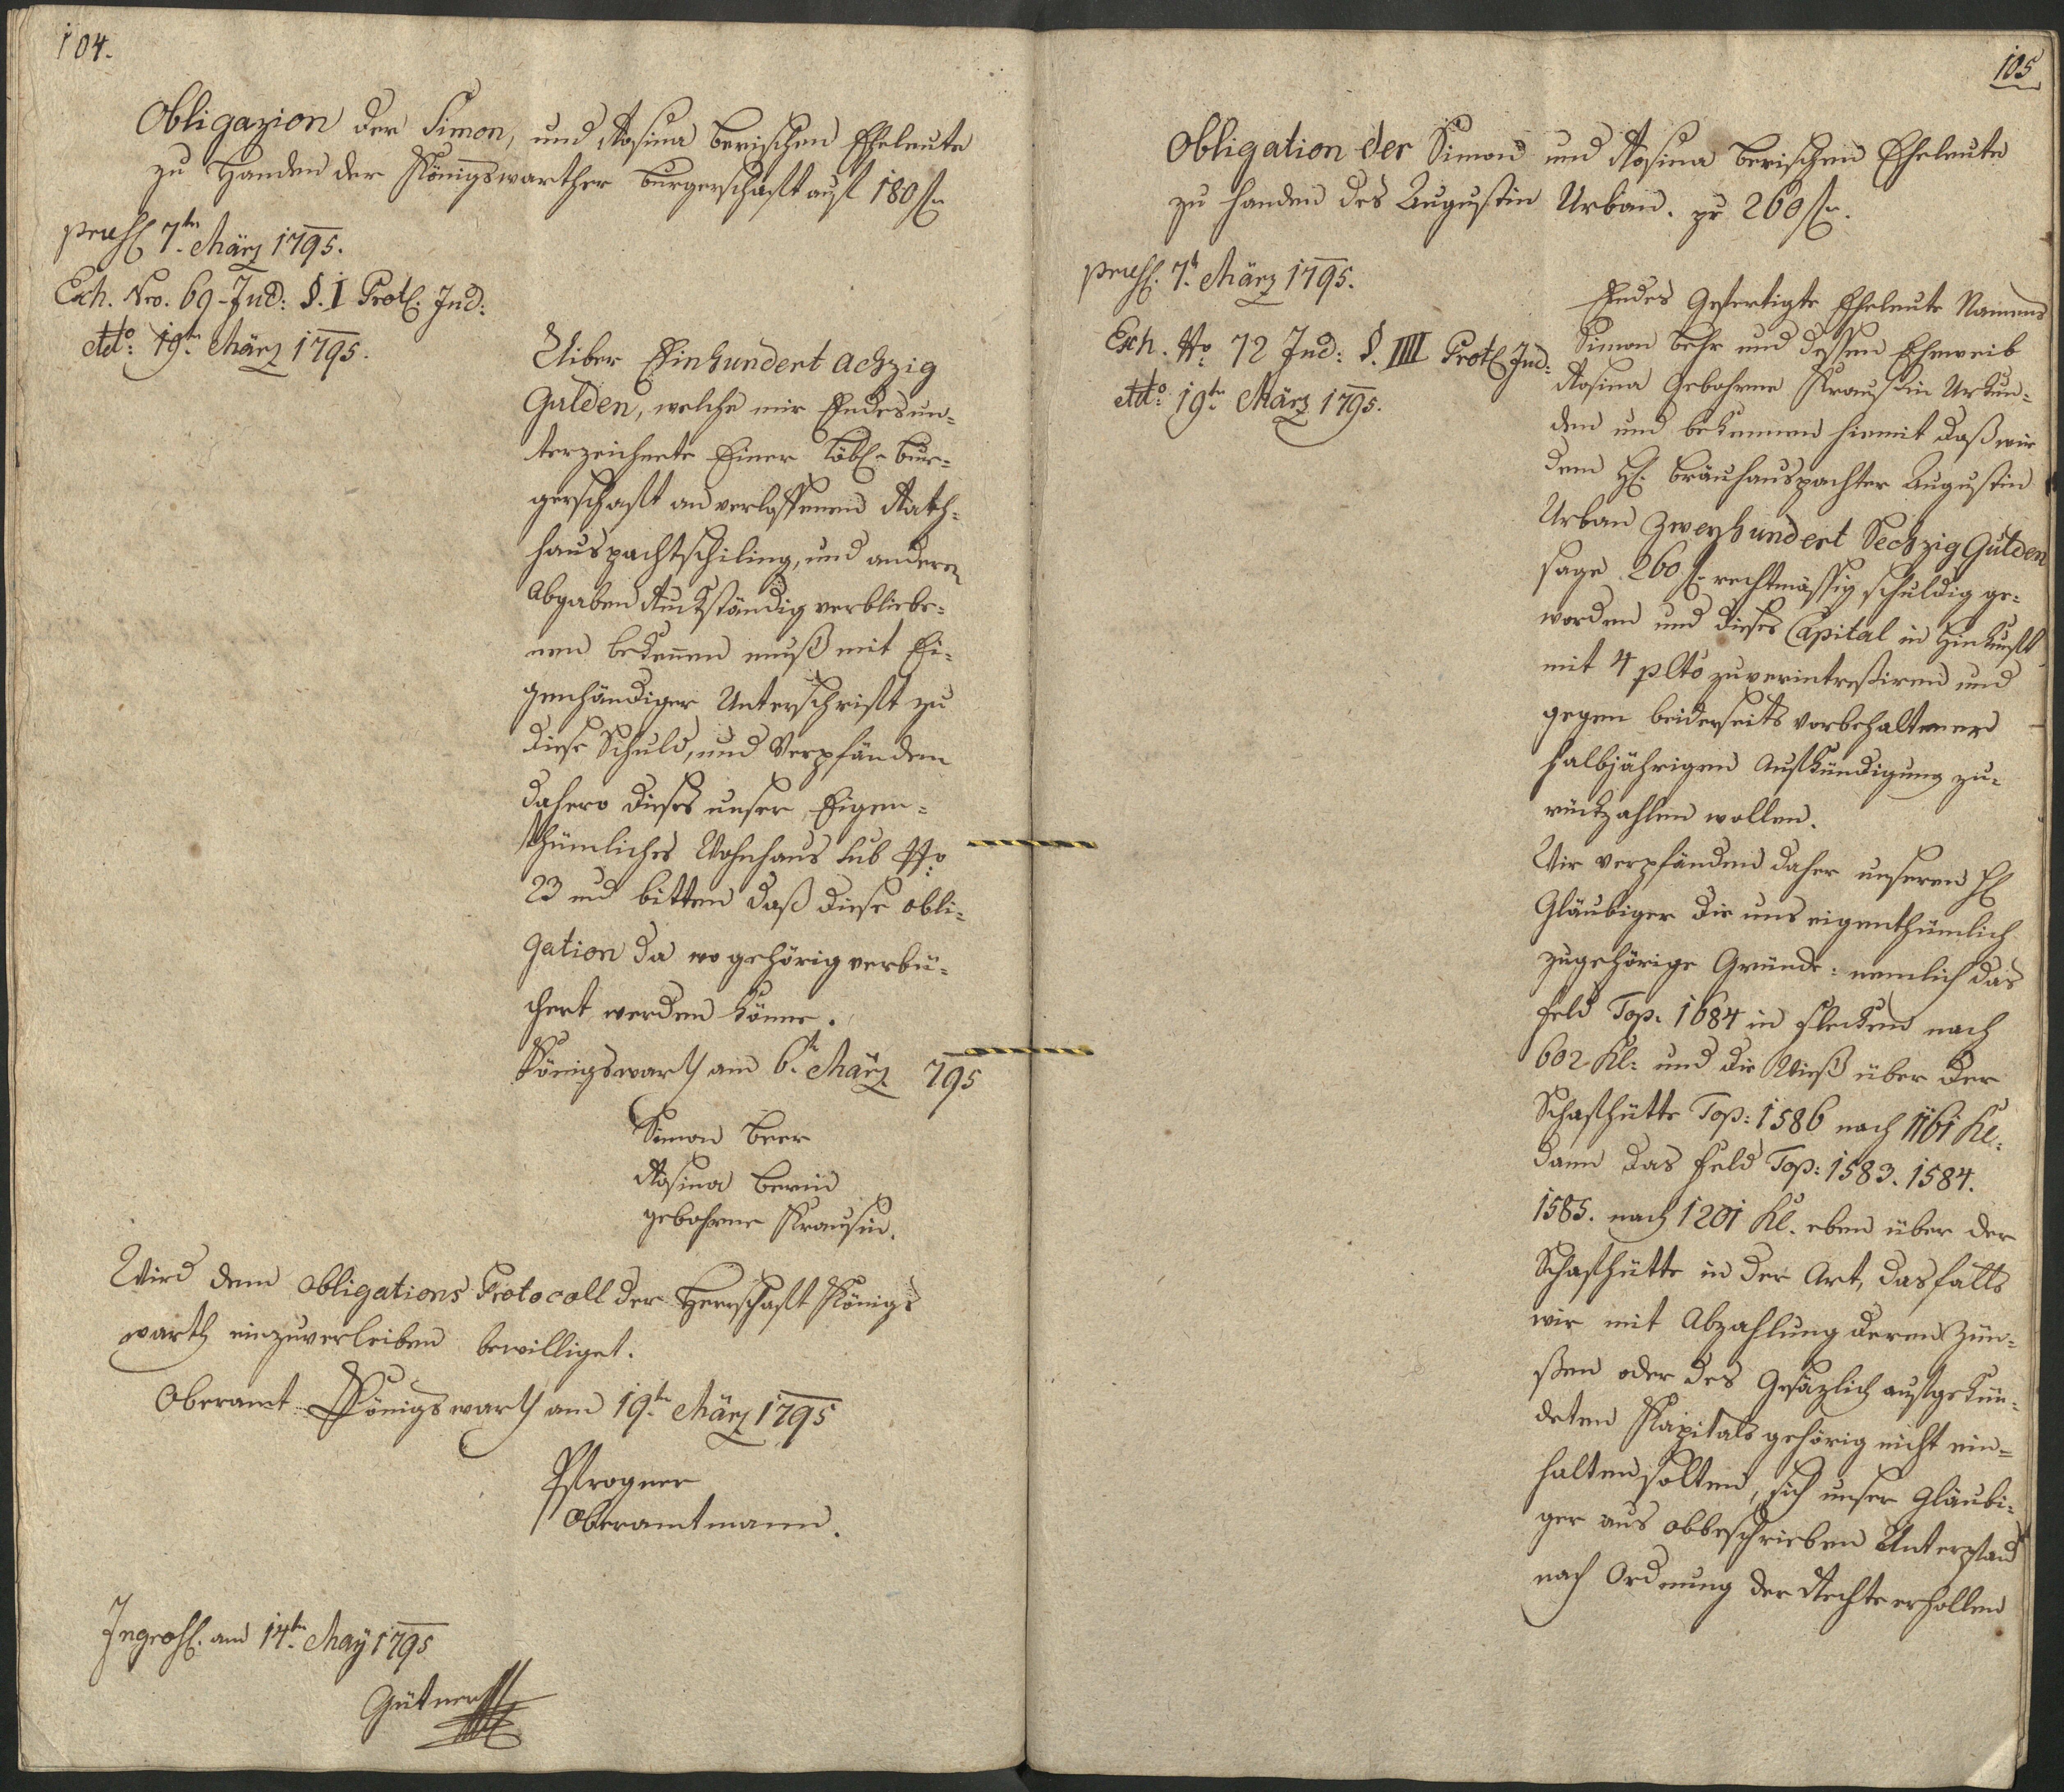 104.
Obligazion der Simon, und Rosina Berischen Eheleute
zu Handen der Königswarther Burgerschaft auf 180 f
pręss 7tn März 1795.
Exh. Nro. 69 Jud: §. I Prot. Jud:
ddo: 19tn März 1795.
Uiber Einhundert achzig
Gulden, welche wir Endesun-
terzeichnete Einer Löbl. Bur-
gerschaft an verlossenen Rath-
hauspachtschiling, und anderen
Abgaben Ruckständig verbliebe-
nen bekennen muß mit Ei-
genhändiger Unterschrift zu
diese Schuld, und Verpfänden
dahero dieses unser Eigen-
thümliches Wohnhaus sub No
23 und bitten daß diese obli-
gation da wo gehörig verbü-
chert werden könne.
Königswarth am 6t März 795
Simon Beer
Rosina Berin
gebohrne Krausin.
Wird dem Obligations Protocoll der Herrschaft Königs
warth einzuverleiben bewilliget.
Oberamt Königswarth am 19tn März 1795
Pstrogner
Oberamtmann.
Ingross. am 14tn May 1795
Gütner
105
Obligation der Simon und Rosina Berischen Eheleute
zu handen des Augustin Urban. pr 260 f.
pręss. 7t März 1795.
Exh. No 72 Jud: §. IIII Prot. Jud:
ddo: 19tn März 1795.
Endes Gefertigte Eheleute Namens
Simon Behr und dessen Eheweib
Rosina Gebohrne Krausin Urkun-
den und bekennen hiemit daß wir
dem H. Bräuhauspachter Augustin
Urban Zweyhundert Sechzig Gulden
sage 260 f rechtmässig schuldig ge-
worden und dieses Capital in Hinkunft
mit 4 pCto zuverintreßiren und
gegen beiderseits vorbehaltener
halbjährigen Aufkündigung zu-
rückzahlen wollen.
Wir verpfänden daher unseren H
Gläubiger die uns eigenthümlich
zugehörige Gründe: nemlich das
Feld Top. 1684 in Flecken nach
602 Kl: und die Wieß über der
Schafhütte Top: 1586 nach 1161 Kl:
dann das Feld Top: 1583. 1584.
1585. nach 1201 Kl. eben über der
Schafhütte in der Art, das falls
wir mit Abzahlung deren Zün-
ßen oder des Gesäzlich aufgekün-
deten Kapitals gehörig nicht ein-
halten solten, sich unser Gläubi-
ger aus obbeschrieben Unterpfand
nach Ordnung der Rechte erhollen